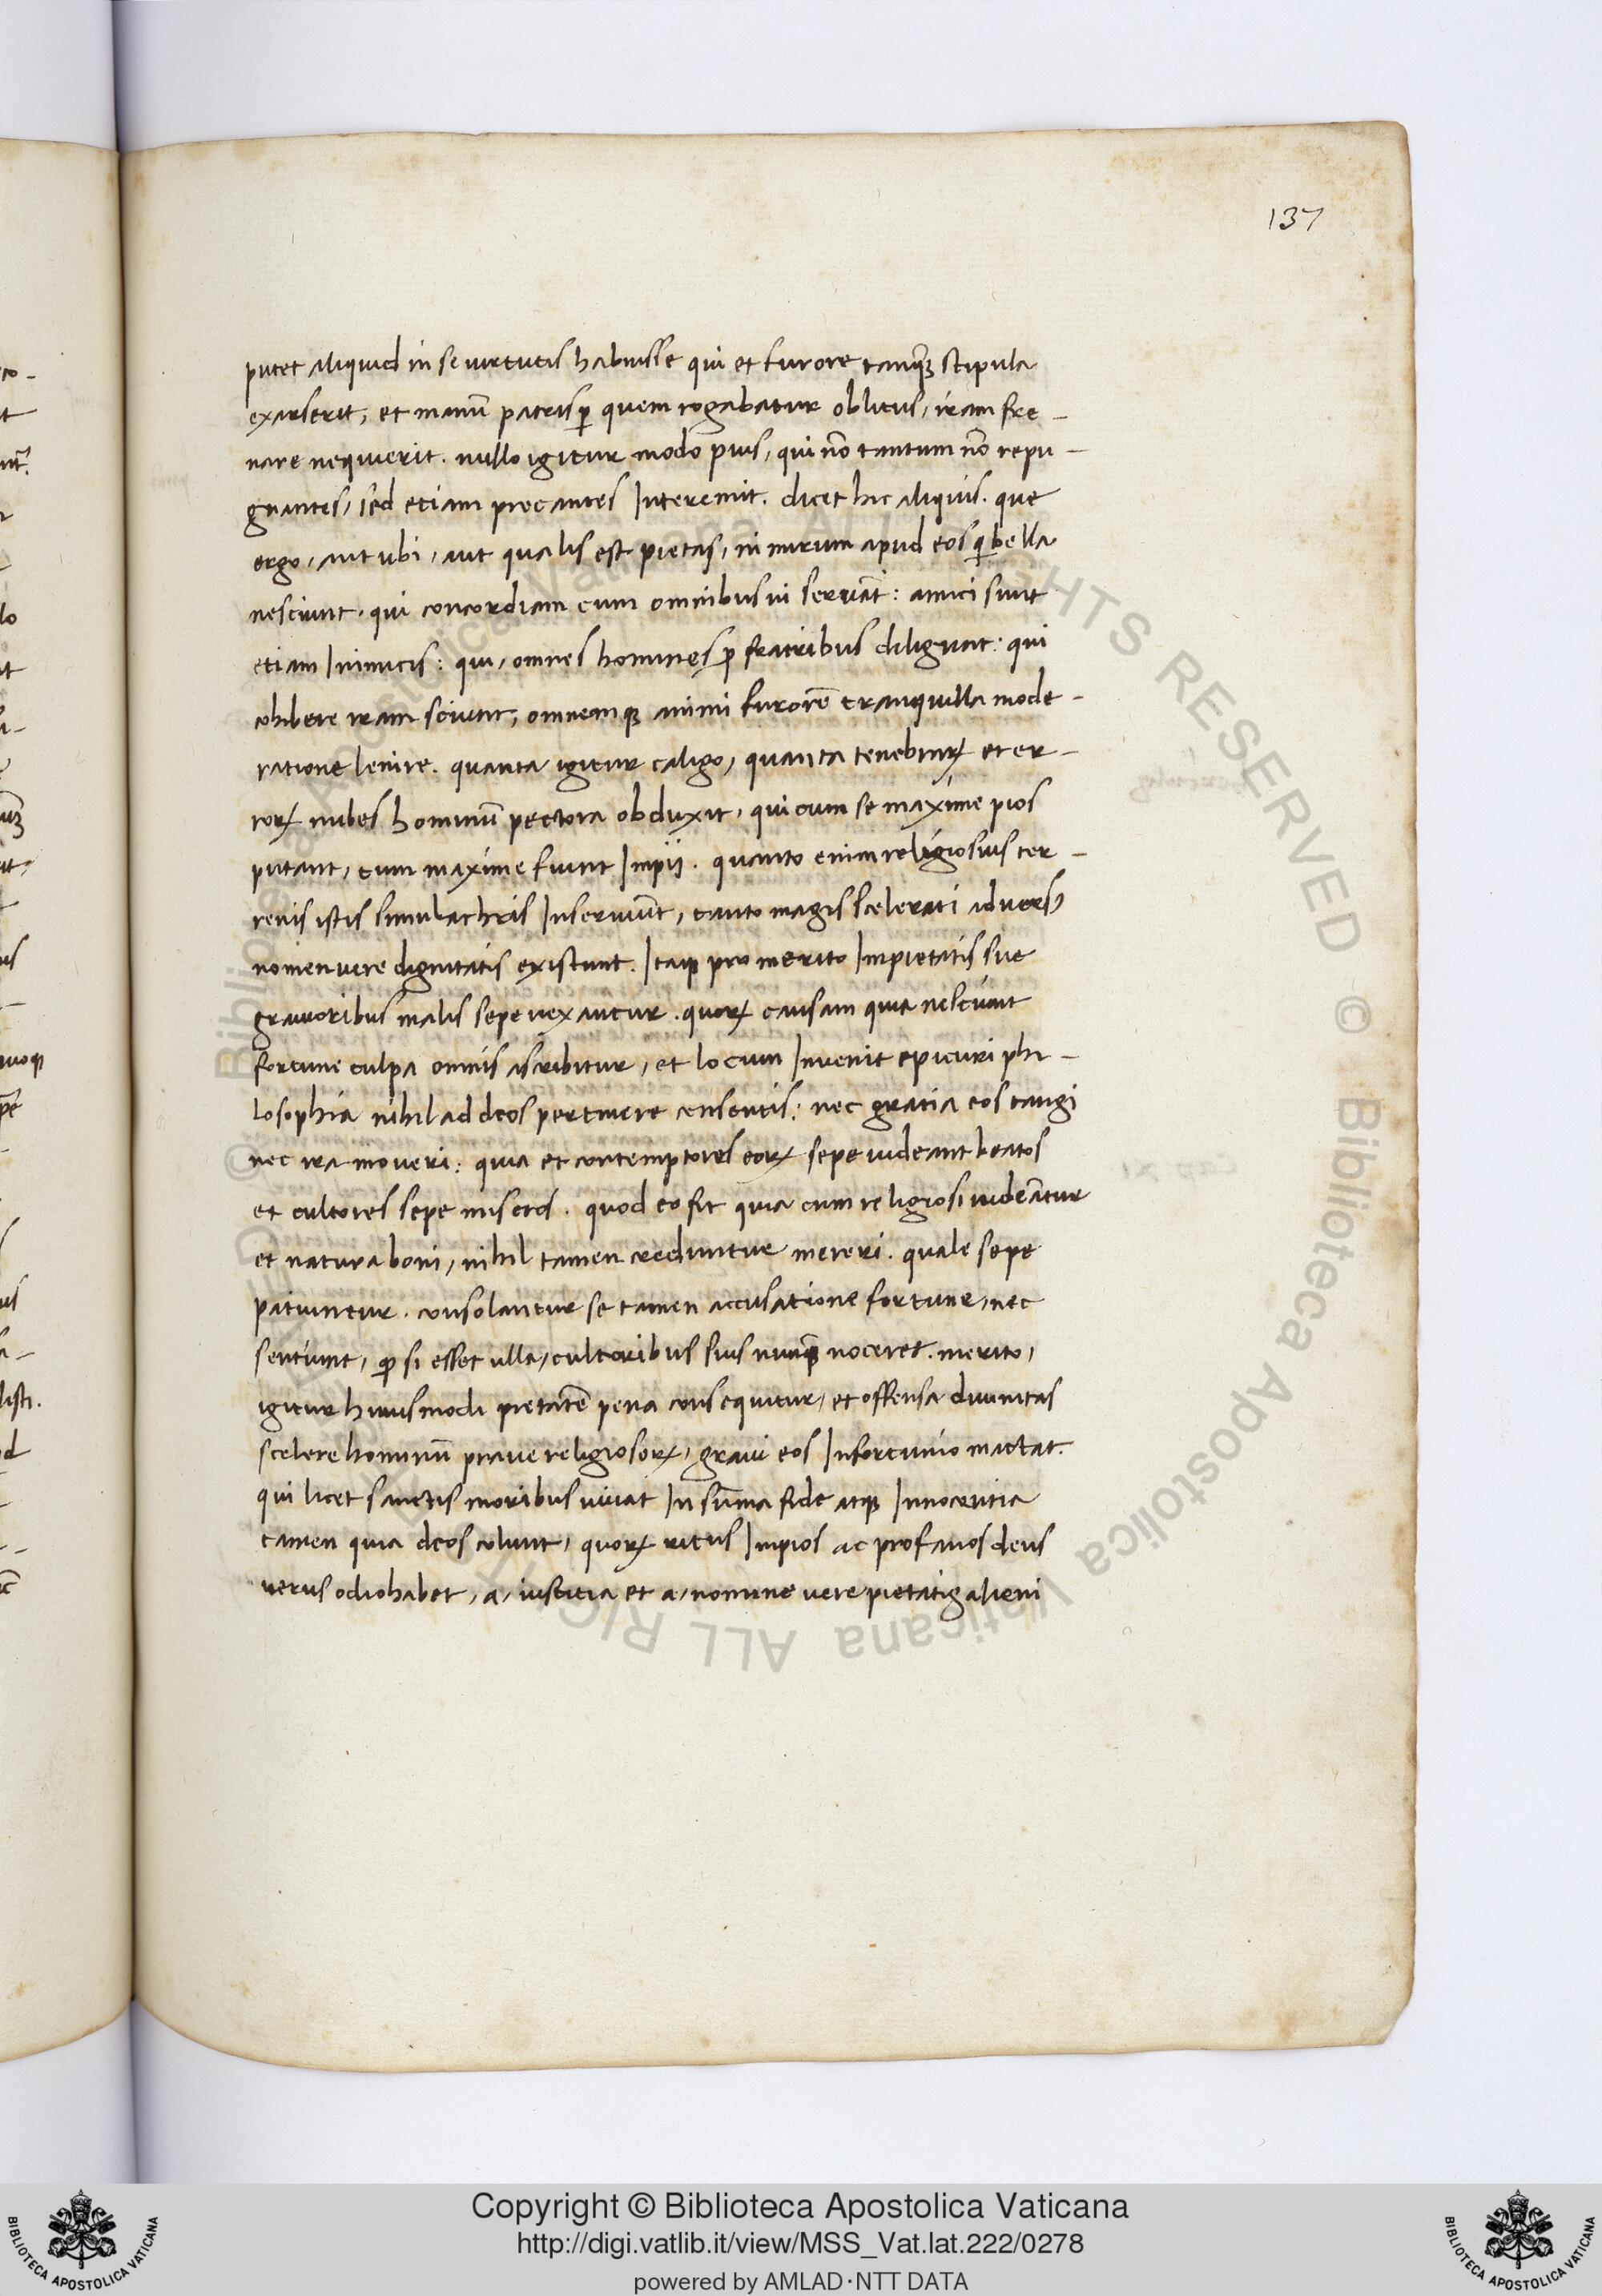 137
putet aliquid in se uirtutis habuisse qui et furore tanqȝ stipula
exarserit, et manū patris ꝑ quem rogabatur oblitus, iram fre-
nare nequierit. nullo igitur modo pius, qui nō tantum nō repu-
gnantes, sed etiam precantes Interemit. dicet hic aliquis. que
ergo, aut ubi, aut qualis est pietas, ni mirum apud eos qͥ bella
nesciunt. qui concordiam cum omnibus ui seruāt: amici sunt
etiam Inimicis: qui, omnes homines ꝑ fratribus diligunt: qui
cohibere iram sciunt, omnemqȝ animi furorē tranquilla mode-
ratione lenire. quanta igitur caligo, quanta tenebrarꝝ et er-
rorꝝ nubes hominū pectora obduxit, qui cum se maxime pios
putant, tum maxime fiunt Impii. quanto enim religiosius ter-
renis istis simulachris Inseruiūt, tanto magis scelerati aduersꝰ
nomen uere dignitatis existunt. Itaqȝ pro merito Impietatis sue
grauioribus malis sepe uexantur. quorꝝ causam quia nesciunt
fortune culpa omnis ascribitur, et locum Inuenit epicuri phi-
losophia nihil ad deos pertinere censentis: nec gratia eos tangi
nec ira moueri: quia et contemptores eorꝝ sepe uideant beatos
et cultores sepe miseros. quod eo fit quia cum religiosi uideātur
et natura boni, nihil tamen creduntur mereri. quale sepe
patiuntur. consolantur se tamen accusatione fortune, nec
sentiunt, ꝙ si esset ulla, cultoribus suis nunqȝ noceret. merito,
igitur huiusmodi pietatē pena consequitur, et offensa diuinitas
scelere hominū praue religiosorꝝ, graui eos Infortunio mactat.
qui licet sanctis moribus uiuāt In sūma fide atqȝ Innocentia
tamen quia deos colunt, quorꝝ ritus Impios ac profanos deus
uerus odio habet, a, iustitia et a, nomine uere pietatis alieni
Copyright © Biblioteca Apostolica Vaticana
http://digi.vatlib.it/view/MSS_Vat.lat.222/0278
powered by AMLAD·NTT DATA